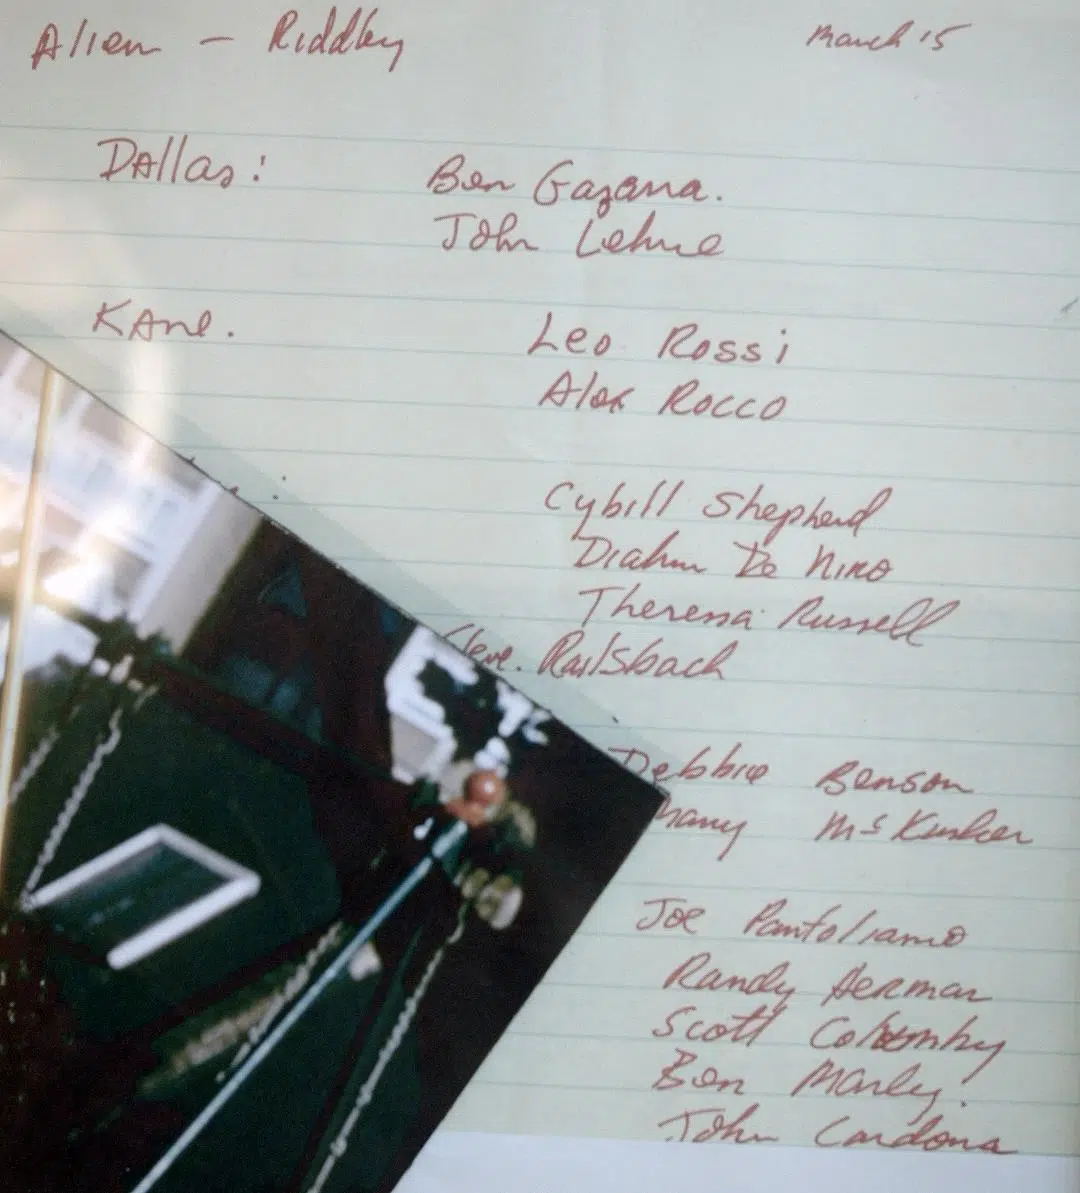 Alien - Riddley
March 15
Dallas: Ben Gazarra.
John Lehne
Kane. Leo Rossi
Alex Rocco
Cybill Shepherd
Diahn De Niro
Theresa Russell
Steve. Railsback
Debbie Benson
Harry McKunker
Joe Pantoliamo
Randy Herman
Scott Colomby
Ben Marley.
John Cardona